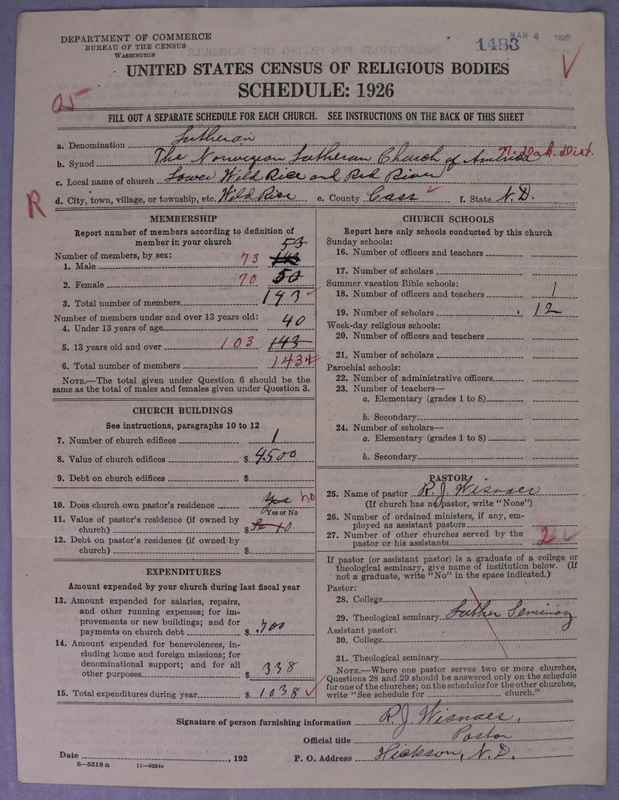 DEPARTMENT OF COMMERCE
BUREAU OF THE CENSUS
WASHINGTON
1483
MAR 4
UNITED STATES CENSUS OF RELIGIOUS BODIES
SCHEDULE: 1926
FILL OUT A SEPARATE SCHEDULE FOR EACH CHURCH. SEE INSTRUCTIONS ON THE BACK OF THIS SHEET
a. Denomination Lutheran
b. Synod The Norwegian Lutheran Church of America N. Dak. Dist.
c. Local name of church Lower Wild Rice and Red River
R
d. City, town, village, or township, etc. Wild Rice e. County Cass f. State N.D.
MEMBERSHIP
Report number of members according to definition of member in your church
Number of members, by sex:
1. Male 73 53 143
2. Female 70 50
3. Total number of members 143
Number of members under and over 13 years old:
4. Under 13 years of age 40
5. 13 years old and over 103 143
6. Total number of members 143
NOTE.—The total given under Question 6 should be the
same as the total of males and females given under Question 3.
CHURCH BUILDINGS
See instructions, paragraphs 10 to 12
7. Number of church edifices 1
8. Value of church edifices $ 4500
9. Debt on church edifices $
10. Does church own pastor's residence yes no
Yes or No
11. Value of pastor's residence (if owned by
church) $
12. Debt on pastor's residence (if owned by
church) $
EXPENDITURES
Amount expended by your church during last fiscal year
13. Amount expended for salaries, repairs,
and other running expenses; for im-
provements or new buildings; and for
payments on church debt $ 700
14. Amount expended for benevolences, in-
cluding home and foreign missions; for
denominational support; and for all
other purposes $ 338
15. Total expenditures during year $ 1038
CHURCH SCHOOLS
Report here only schools conducted by this church
Sunday schools:
16. Number of officers and teachers
17. Number of scholars
Summer vacation Bible schools:
18. Number of officers and teachers 1
19. Number of scholars 12
Week-day religious schools:
20. Number of officers and teachers
21. Number of scholars
Parochial schools:
22. Number of administrative officers
23. Number of teachers—
a. Elementary (grades 1 to 8)
b. Secondary
24. Number of scholars—
a. Elementary (grades 1 to 8)
b. Secondary
PASTOR
25. Name of pastor R. J. Wisnaes
(If church has no pastor, write "None")
26. Number of ordained ministers, if any, em-
ployed as assistant pastors
27. Number of other churches served by the
pastor or his assistants 2
If pastor (or assistant pastor) is a graduate of a college or
theological seminary, give name of institution below. (If
not a graduate, write "No" in the space indicated.)
Pastor:
28. College
29. Theological seminary Luther Seminary
Assistant pastor:
30. College
31. Theological seminary
NOTE.—Where one pastor serves two or more churches,
Questions 28 and 29 should be answered only on the schedule
for one of the churches; on the schedules for the other churches,
write "See schedule for church."
Signature of person furnishing information R. J. Wisnaes,
Official title Pastor
Date , 192 P. O. Address Hickson, N.D.
8—5518 a 11—9054